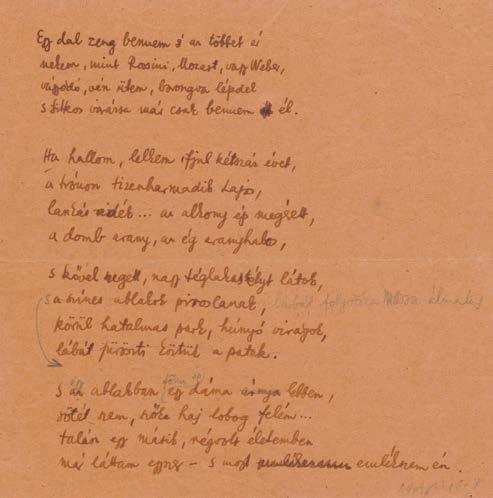 Egy dal zeng bennem s az többet ér
nekem, mint Rossini, Mozart, vagy Weber,
vágyódó, vén ütem, borongva lépdel
s titkos varázsa már csak bennem él.
Ha hallom, lelkem ifjul kétszáz évet,
a trónon tizenharmadik Lajos,
lankás vidék... az alkony ép
a domb arany, az ég aranyhabos,
s kővel szegett, nagy téglakastélyt látok,
s a színes ablakok piroslanak,
körül hatalmas park, húnyó virágok,
lábát füröszti köztük a patak.
S az ablakban egy dáma árnya lebben,
sötét szem, szőke haj lobog felém...
talán egy másik, régvolt életemben
már láttam egyszer – s most emlékszem én.